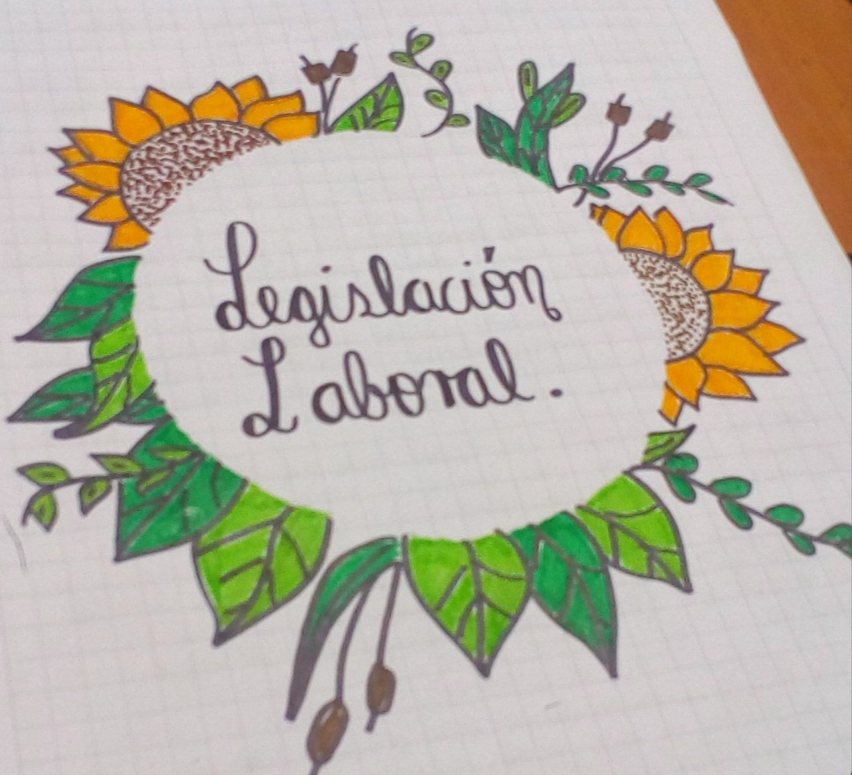 Legislación
Laboral.